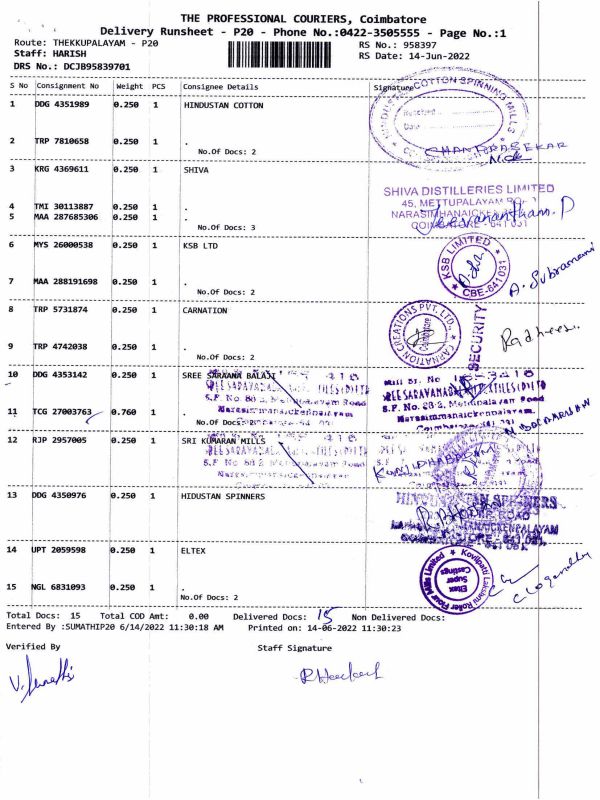 THE PROFESSIONAL COURIERS, Coimbatore
Delivery Runsheet - P20 - Phone No.:0422-3505555 - Page No.:1
Route: THEKKUPALAYAM - P20
RS No.: 958397
Staff: HARISH
RS Date: 14-Jun-2022
DRS No.: DCJB95839701
S No Consignment No Weight PCS Consignee Details Signature
1 DDG 4351989 0.250 1 HINDUSTAN COTTON
COTTON SPINNING MILLS
Received
Date
2 TRP 7810658 0.250 1 .
No.Of Docs: 2
CHANDRASEKAR
3 KRG 4369611 0.250 1 SHIVA
SHIVA DISTILLERIES LIMITED
45, METTUPALAYAM
4 TMI 30113887 0.250 1 .
NARASIMHANAICKEN
5 MAA 287685306 0.250 1 .
Jeevanantham.P
No.Of Docs: 3
COIMBATORE - 641 031
6 MYS 26000538 0.250 1 KSB LTD
KSB LIMITED
CBE-641 031
7 MAA 288191698 0.250 1 .
No.Of Docs: 2
A. Subramani
8 TRP 5731874 0.250 1 CARNATION
CARNATION CREATIONS PVT. LTD.,
Coimbatore
SECURITY
9 TRP 4742038 0.250 1 .
No.Of Docs: 2
10 DDG 4353142 0.250 1 SREE SARAANA BALAJI
11 TCG 27003763 0.760 1 .
No.Of Docs:
12 RJP 2957005 0.250 1 SRI KUMARAN MILLS
13 DDG 4350976 0.250 1 HIDUSTAN SPINNERS
HINDUSTAN SPINNERS
14 UPT 2059598 0.250 1 ELTEX
Eltex Super Castings
Kovilpatti Lakshmi Roller Flour Mills Limited
15 NGL 6831093 0.250 1 .
No.Of Docs: 2
Total Docs: 15 Total COD Amt: 0.00 Delivered Docs: 15 Non Delivered Docs:
Entered By :SUMATHIP20 6/14/2022 11:30:18 AM Printed on: 14-06-2022 11:30:23
Verified By Staff Signature